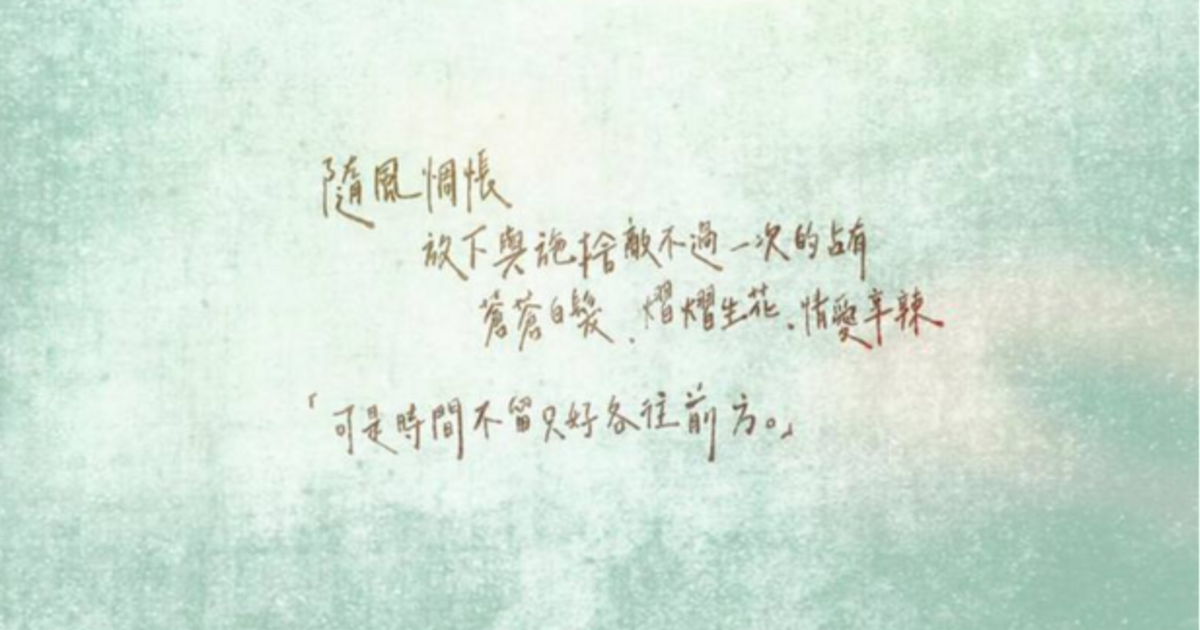 隨風惆悵
放下與施捨敵不過一次的占有
蒼蒼白髮、熠熠生花、情愛辛辣
「可是時間不留只好各往前方。」